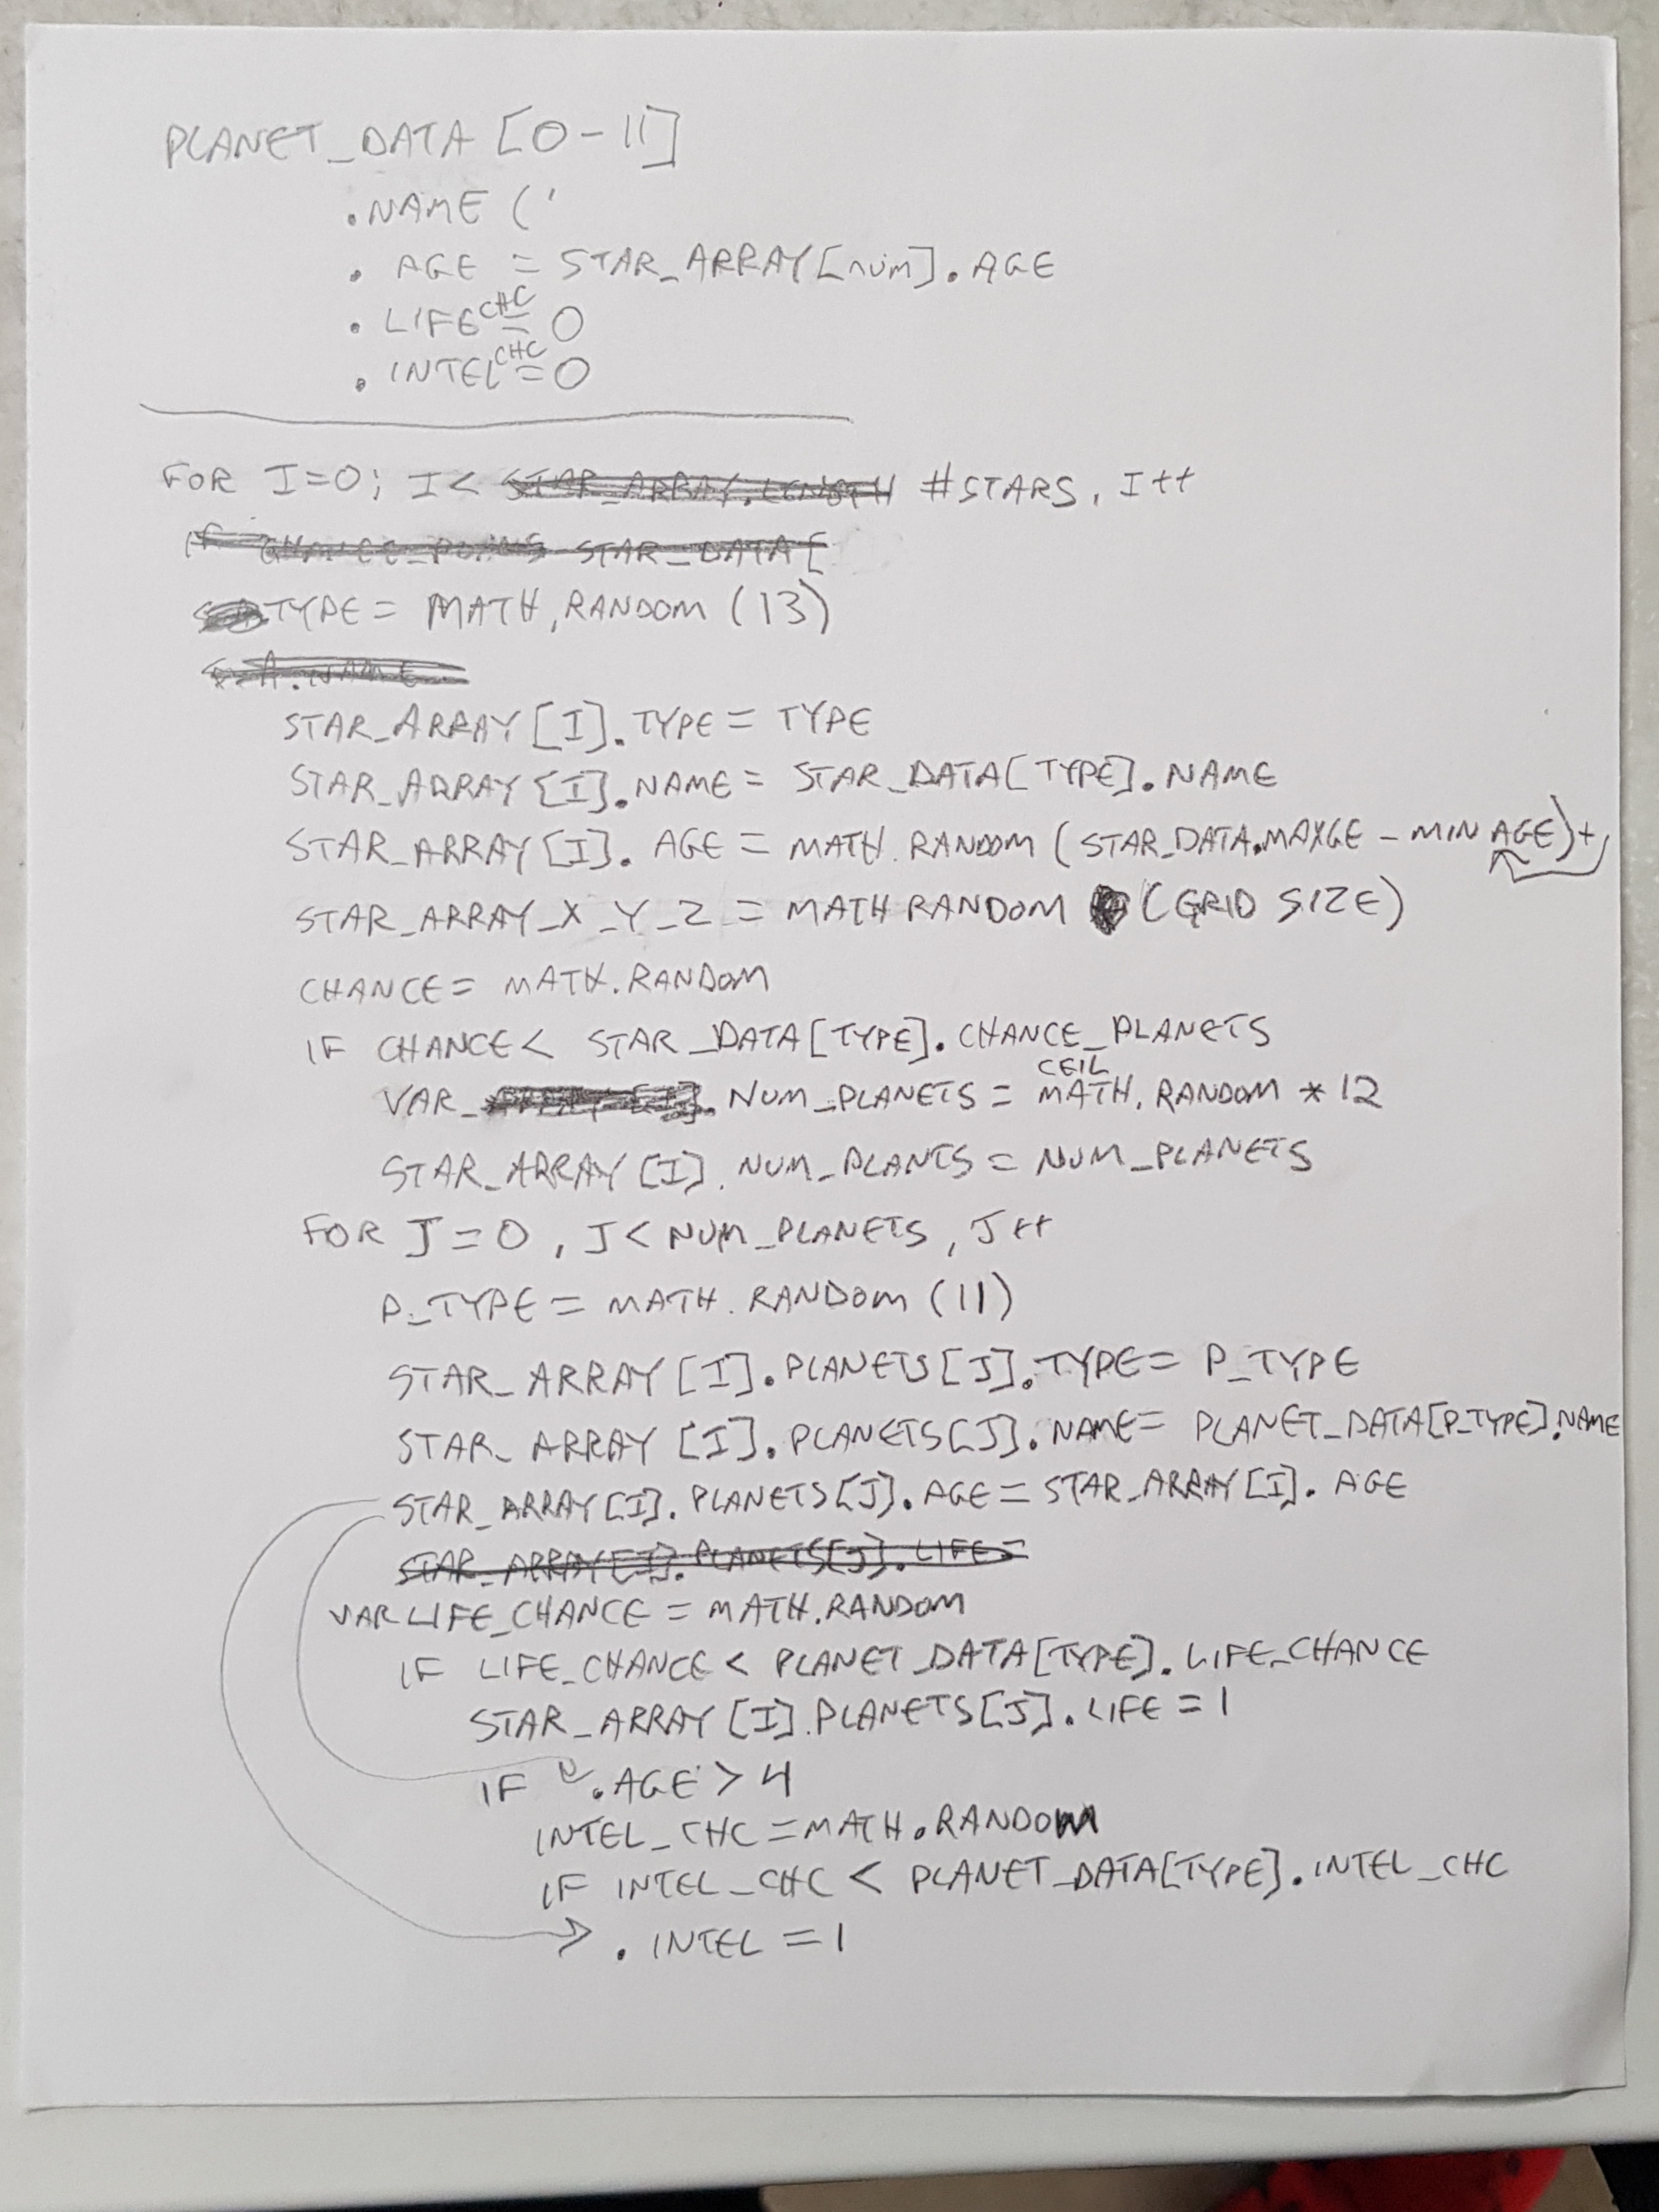 PLANET_DATA [0-11]
.NAME ('
. AGE = STAR_ARRAY[num].AGE
. LIFE CHC = 0
. INTEL CHC = 0
FOR I=0; I< STAR_ARRAY.LENGTH #STARS, I++
IF CHANCE_ STAR_DATA[
TYPE = MATH.RANDOM (13)
.NAME
STAR_ARRAY[I].TYPE = TYPE
STAR_ARRAY[I].NAME = STAR_DATA[TYPE].NAME
STAR_ARRAY[I]. AGE = MATH.RANDOM (STAR_DATA.MAXGE - MIN AGE)+
STAR_ARRAY_X_Y_Z = MATH RANDOM (GRID SIZE)
CHANCE = MATH.RANDOM
IF CHANCE < STAR_DATA[TYPE].CHANCE_PLANETS
VAR_ . NUM_PLANETS = CEIL MATH.RANDOM * 12
STAR_ARRAY[I]. NUM_PLANTS = NUM_PLANETS
FOR J=0, J< NUM_PLANETS, J++
P_TYPE = MATH.RANDOM (11)
STAR_ARRAY[I].PLANETS[J].TYPE = P_TYPE
STAR_ARRAY[I].PLANETS[J].NAME = PLANET_DATA[P_TYPE].NAME
STAR_ARRAY[I].PLANETS[J].AGE = STAR_ARRAY[I]. AGE
STAR_ARRAY[I].PLANETS[J].LIFE=
VAR LIFE_CHANCE = MATH.RANDOM
IF LIFE_CHANCE < PLANET_DATA[TYPE].LIFE_CHANCE
STAR_ARRAY[I].PLANETS[J].LIFE = 1
IF .AGE > 4
INTEL_CHC = MATH.RANDOM
IF INTEL_CHC < PLANET_DATA[TYPE].INTEL_CHC
. INTEL = 1